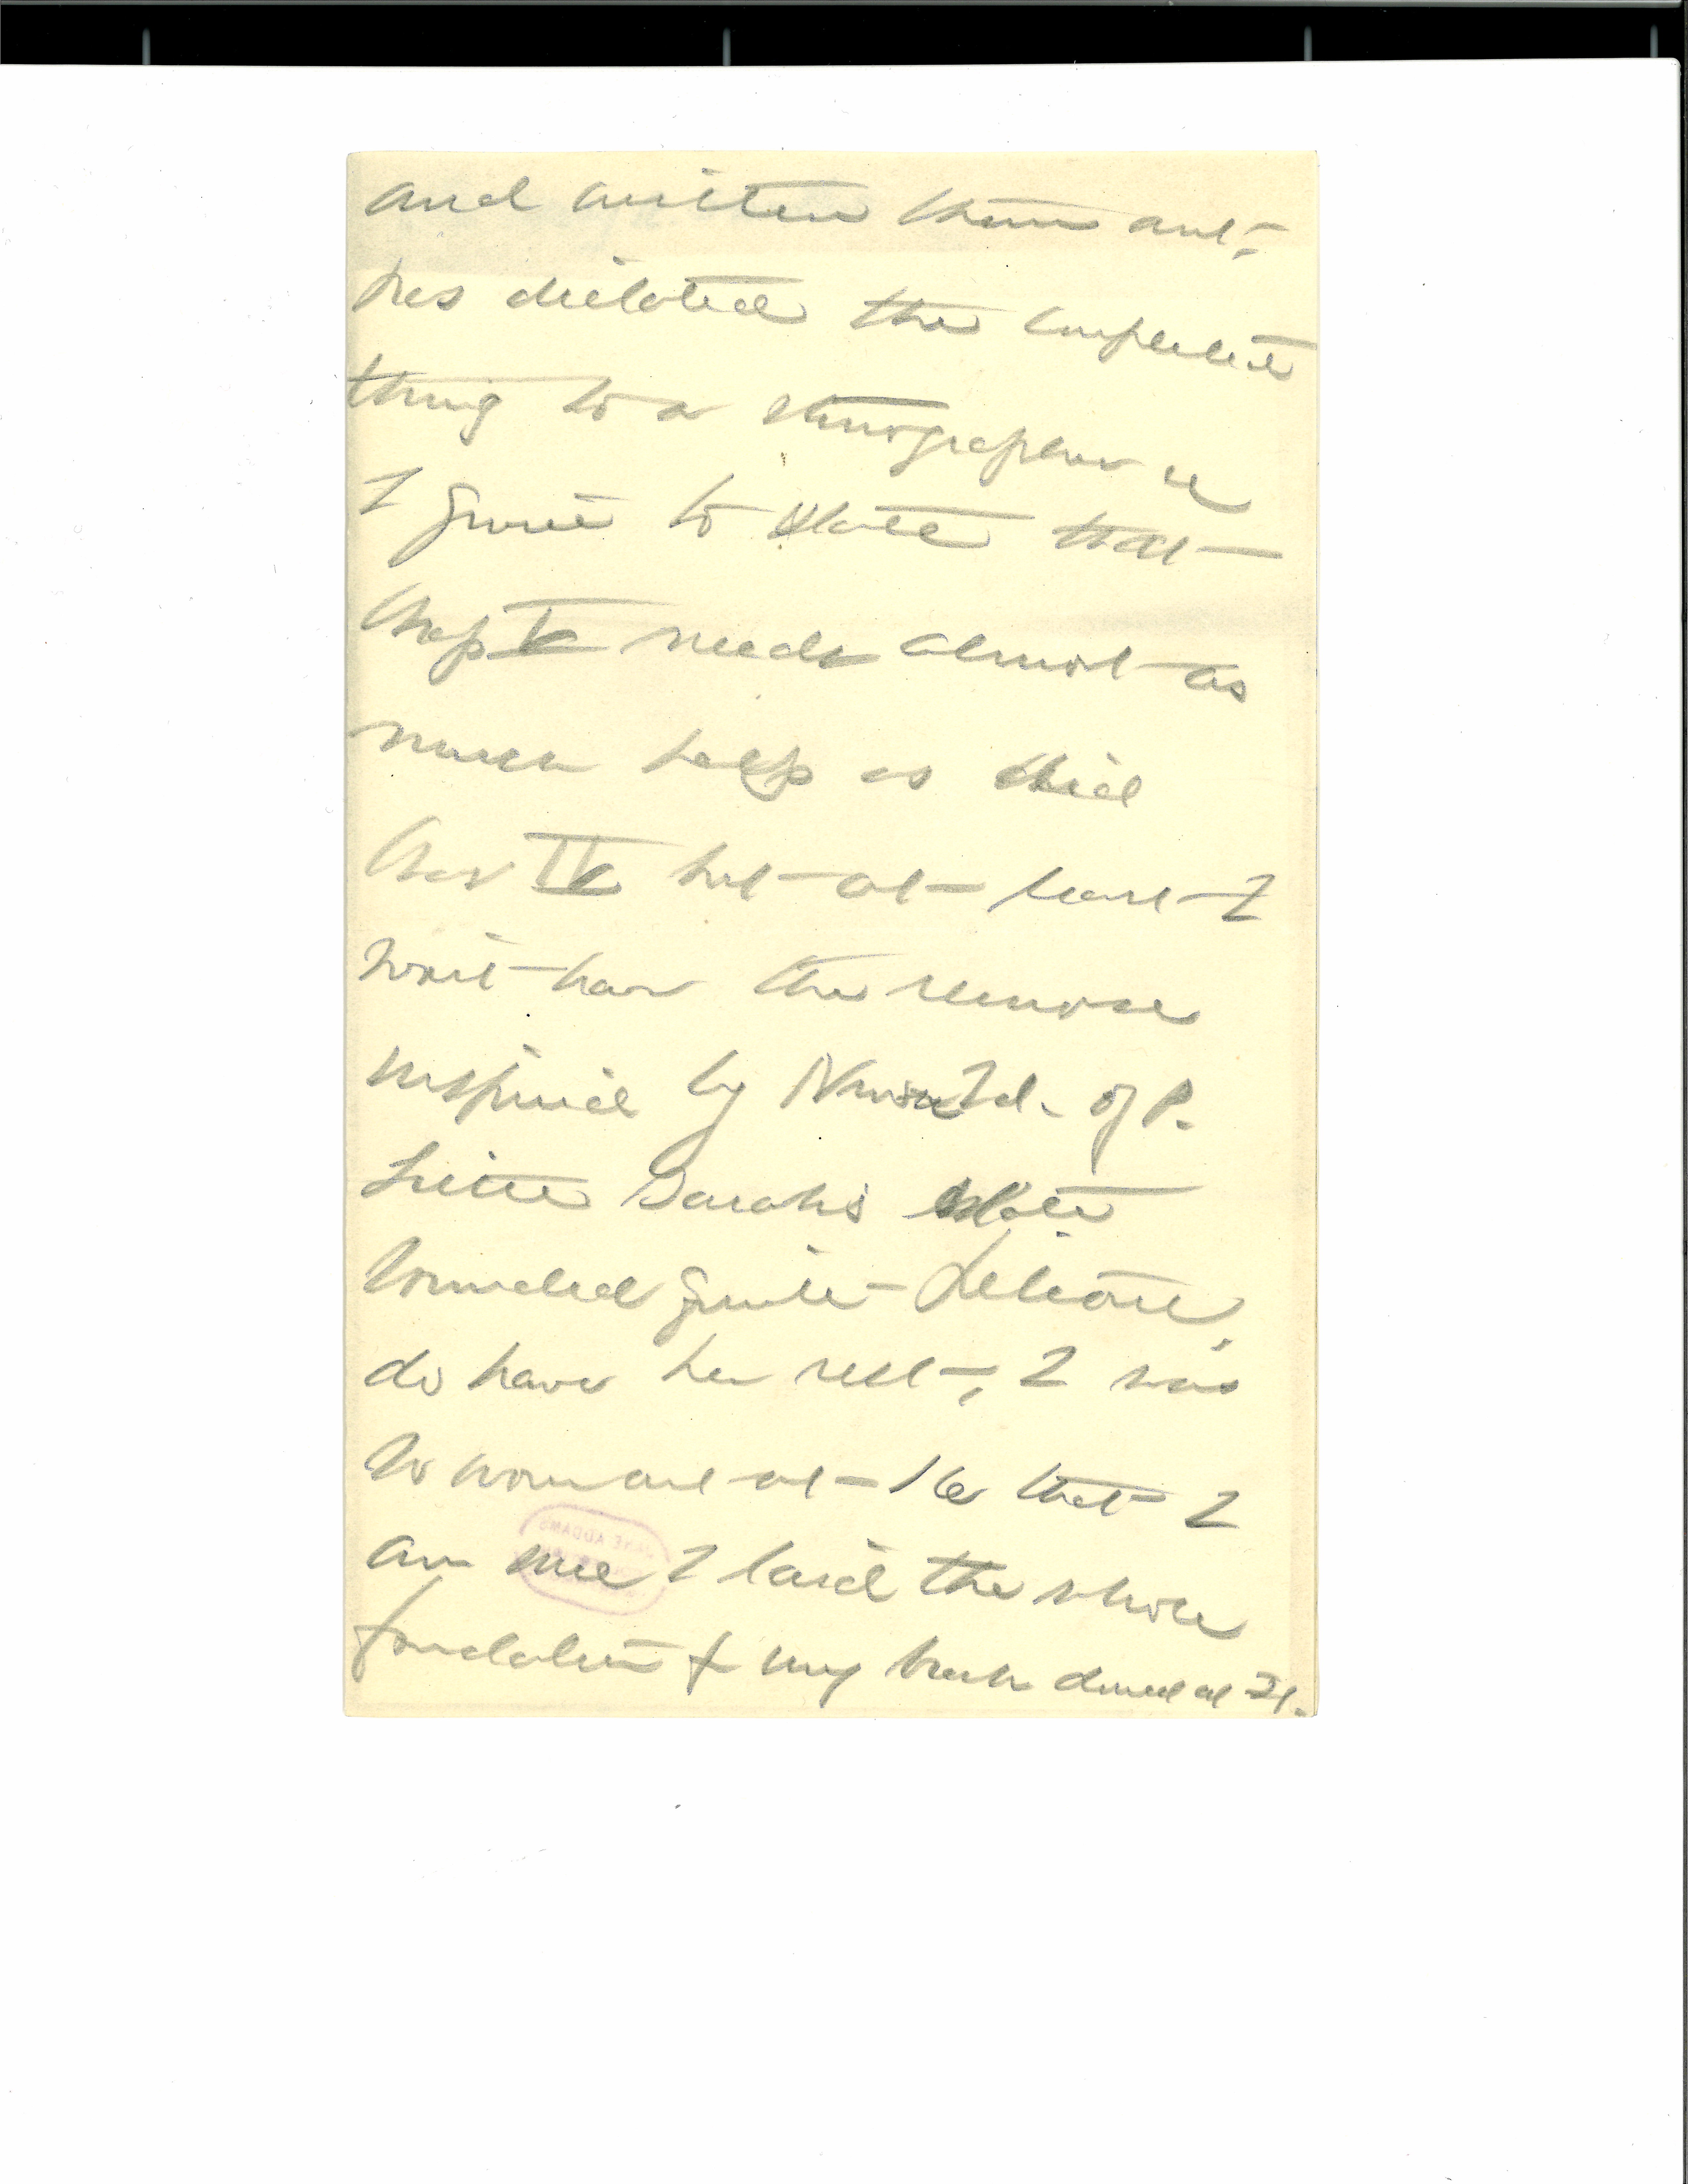 and written them out,
has dictated the complete
thing to a stenographer &
I grieve to state that
Chap V needs almost as
much help as did
Chap IV but at least I
won't have the remorse
inspired by Newer Id. of P.
Little Sarah's state
sounded quite
do have her rest, I was
so worn out at 16 that I
am sure I laid the whole
foundation for my break down at 21.
JANE ADDAMS